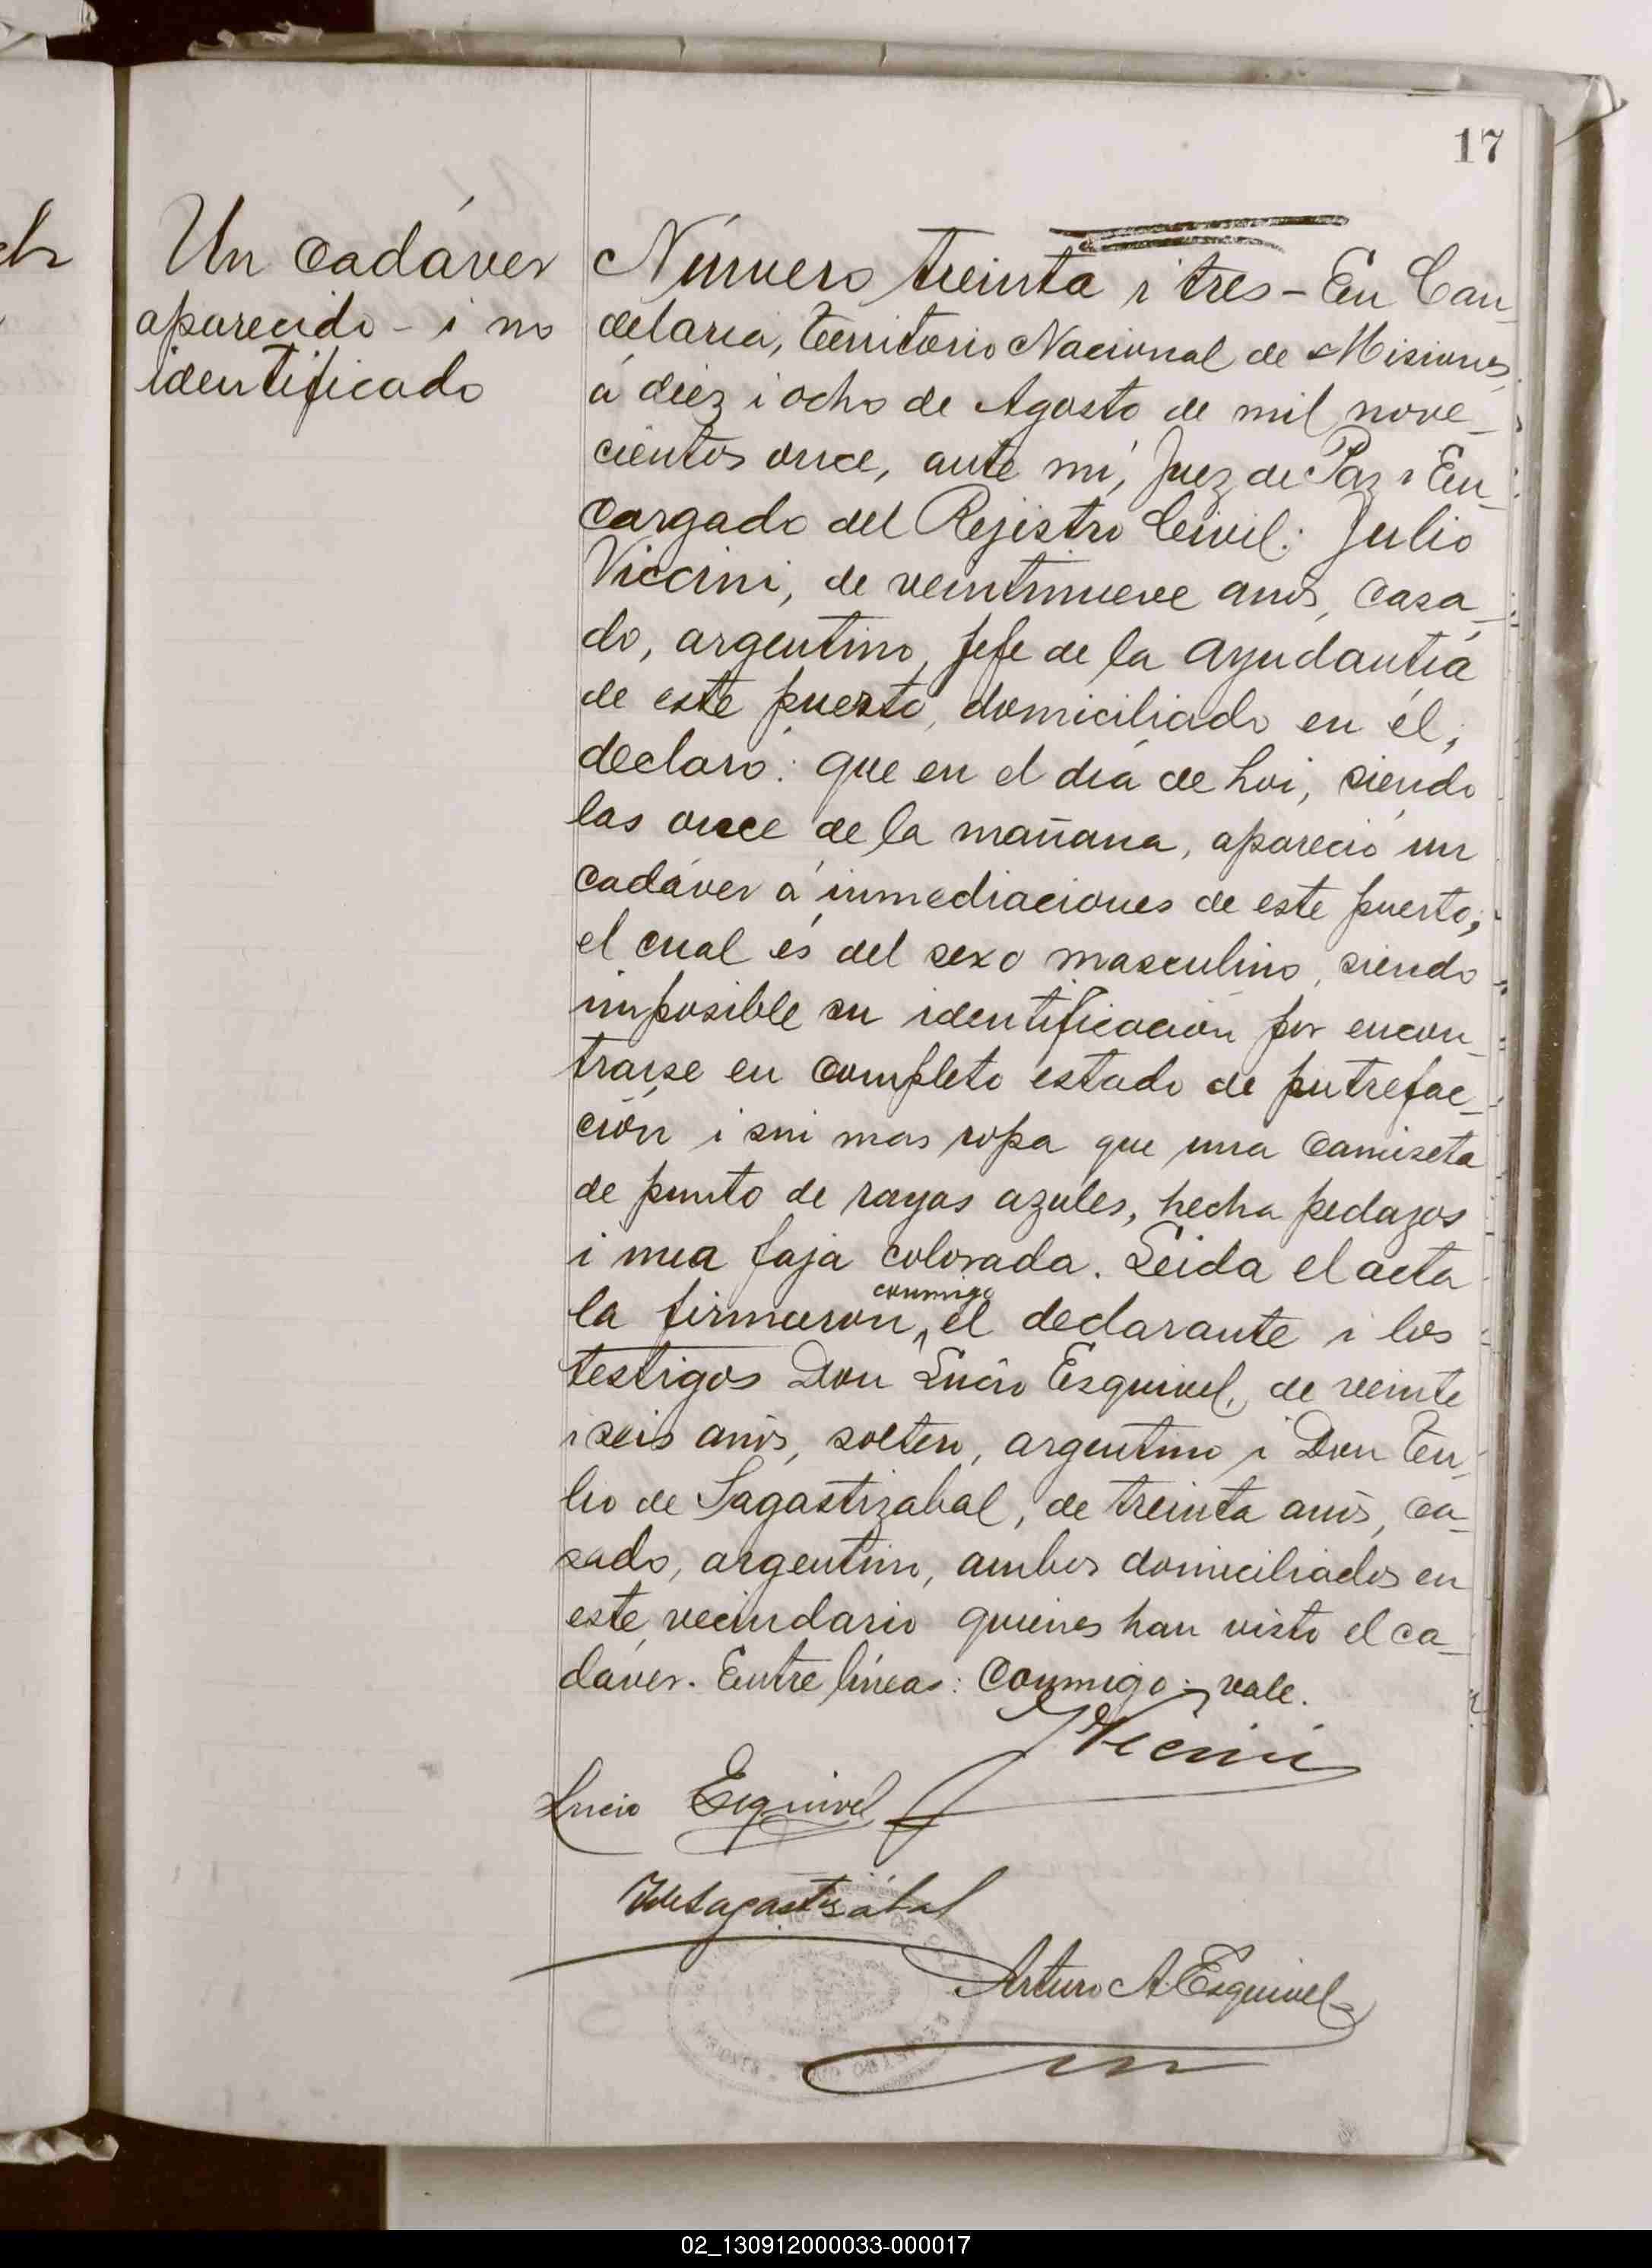 17
Un cadáver
aparecido - i no
identificado
Número treinta i tres - En Can_
delaria, territorio Nacional de Misiones,
á diez i ocho de Agosto de mil nove_
cientos once, ante mí, Juez de Paz i En_
cargado del Rejistro Civil: Julio
Viccini, de veintinueve anõs, casa_
do, argentino, Jefe de la Ayudantía
de este puerto, domiciliado en él;
declaró: que en el día de hoi, siendo
las once de la mañana, apareció un
cadáver á inmediaciones de este puerto;
el cual és del sexo masculino, siendo
imposible su identificación por encon_
trarse en completo estado de putrefac_
ción i sin mas ropa que una camiseta
de punto de rayas azules, hecha pedazos
i una faja colorada. Leida el acta
la firmaron conmigo, el declarante i los
testigos Don Lucio Esquivel, de veinte
i seis anõs, soltero, argentino i Don Tu_
lio de Sagastizabal, de treinta anõs, ca_
sado, argentino, ambos domiciliados en
este vecindario quienes han visto el ca_
dáver. Entre líneas: conmigo: vale.
JViccini
Lucio Esquivel
TdeSagastizábal
Arturo A. Esquivel
02_130912000033-000017